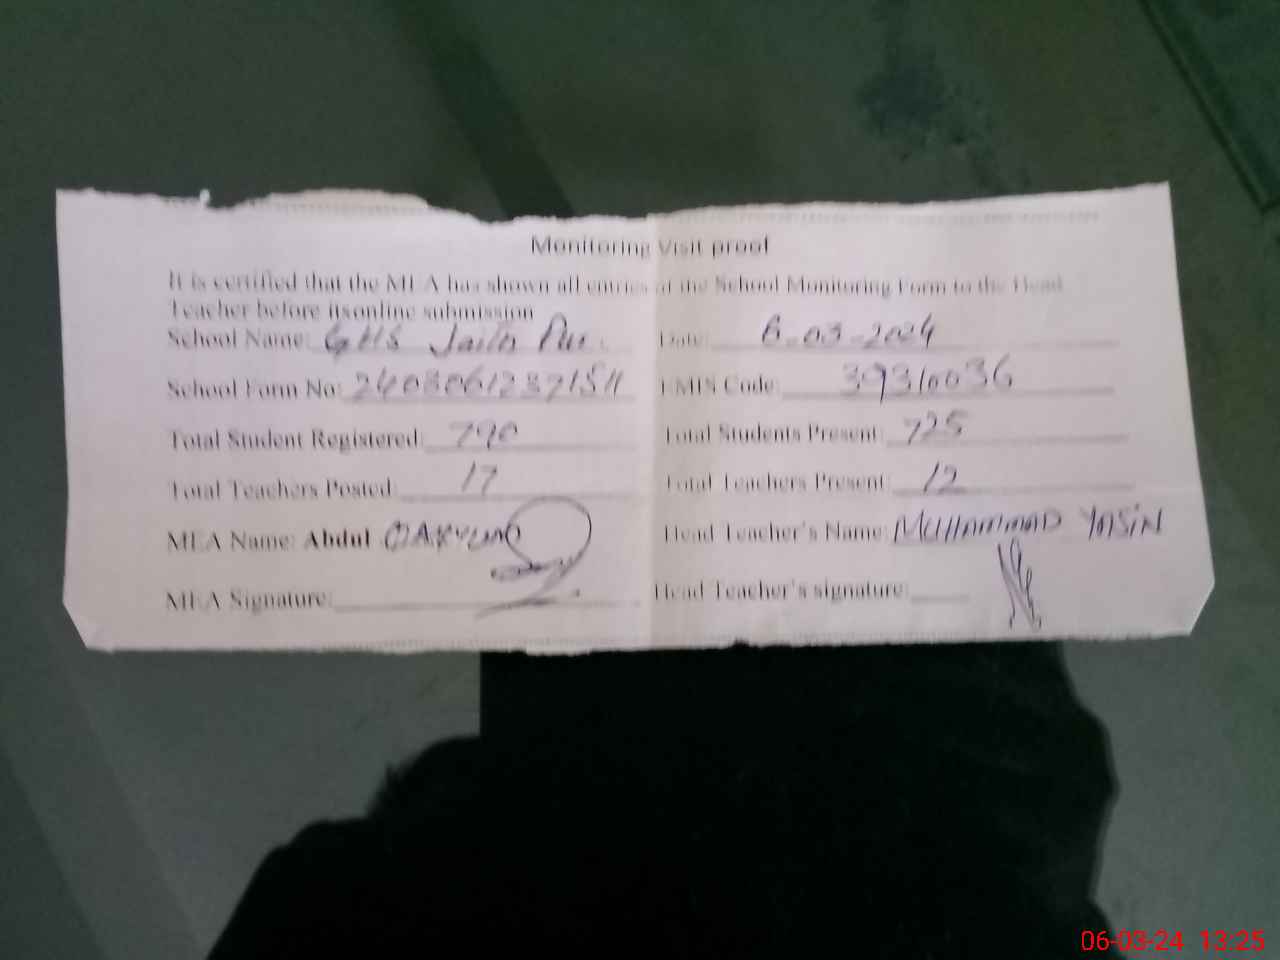 Monitoring Visit proof
It is certified that the MEA has shown all entries of the School Monitoring Form to the Head
Teacher before itsonline submission
School Name: GHS Date: 6-03-2024
School Form No: EMIS Code: 39310036
Total Student Registered: 790 Total Students Present: 725
Total Teachers Posted: 17 Total Teachers Present: 12
MEA Name: Abdul QAYYUM Head Teacher's Name: MUHAMMAD YASIN
MEA Signature: Head Teacher's signature:
06-03-24 13:25